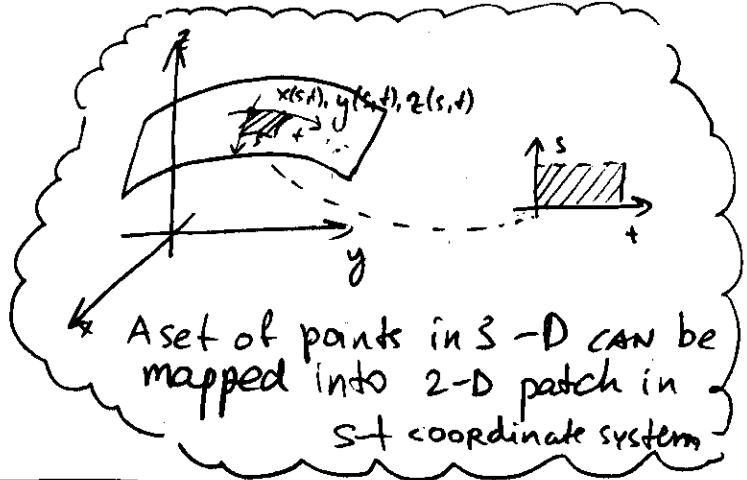 z
x(s,t), y(s,t), z(s,t)
s t
s
t
y
x
A set of points in 3-D CAN be
mapped into 2-D patch in
s-t coordinate system